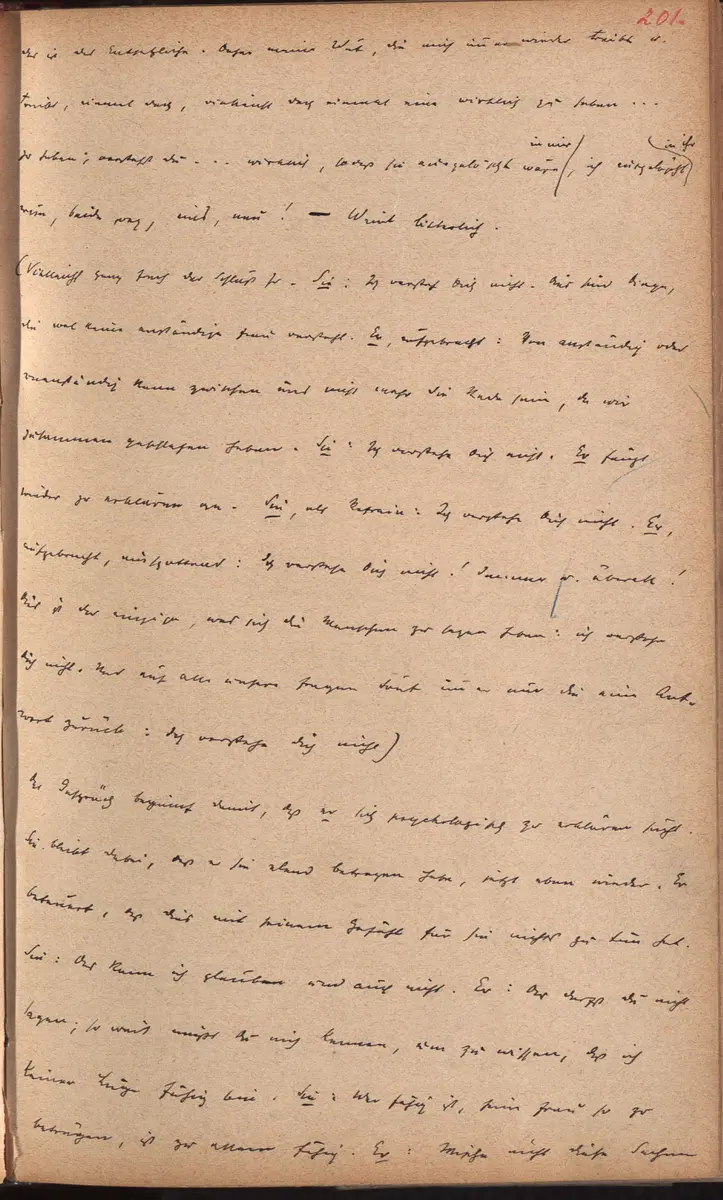 201.
das ist das Entsetzliche. Daher meine Wut, die mich immer wieder treibt u.
treibt, einmal doch, vielleicht doch einmal eine wirklich zu haben ...
zu haben, verstehst du ... wirklich, sodaß sie in mir ausgelöscht wäre, ich in ihr ausgelöscht
wäre, beide weg, eins, neu! — Weint bitterlich.
(Vielleicht ganz durch der Schluß so. Sie: Ich versteh Dich nicht. Das sind Dinge,
die wol keine anständige Frau versteht. Er, aufgebracht: Von anständig oder
unanständig kann zwischen uns nicht mehr die Rede sein, da wir
zusammen geschlafen haben. Sie: Ich verstehe Dich nicht. Er fängt
wieder zu erklären an. Sie, als Refrain: Ich verstehe Dich nicht. Er,
aufgebracht, ausspottend: Ich verstehe Dich nicht! Immer u. überall!
Das ist das einzige, was sich die Menschen zu sagen haben: ich verstehe
Dich nicht. Und auf alle unsere Fragen tönt immer nur die eine Ant-
wort zurück: Ich verstehe Dich nicht)
Das Gespräch beginnt damit, daß er sich psychologisch zu erklären sucht.
Sie bleibt dabei, daß er sie elend betrogen habe, jetzt eben wieder. Er
beteuert, daß dies mit seinem Gefühl für sie nichts zu tun hat.
Sie: Das kann ich glauben und auch nicht. Er: Das darfst du nicht
sagen; so weit mußt du mich kennen, um zu wissen, daß ich
keiner Lüge fähig bin. Sie: Wer fähig ist, seine Frau so zu
betrügen, ist zu allem fähig. Er: Mische nicht diese Sachen